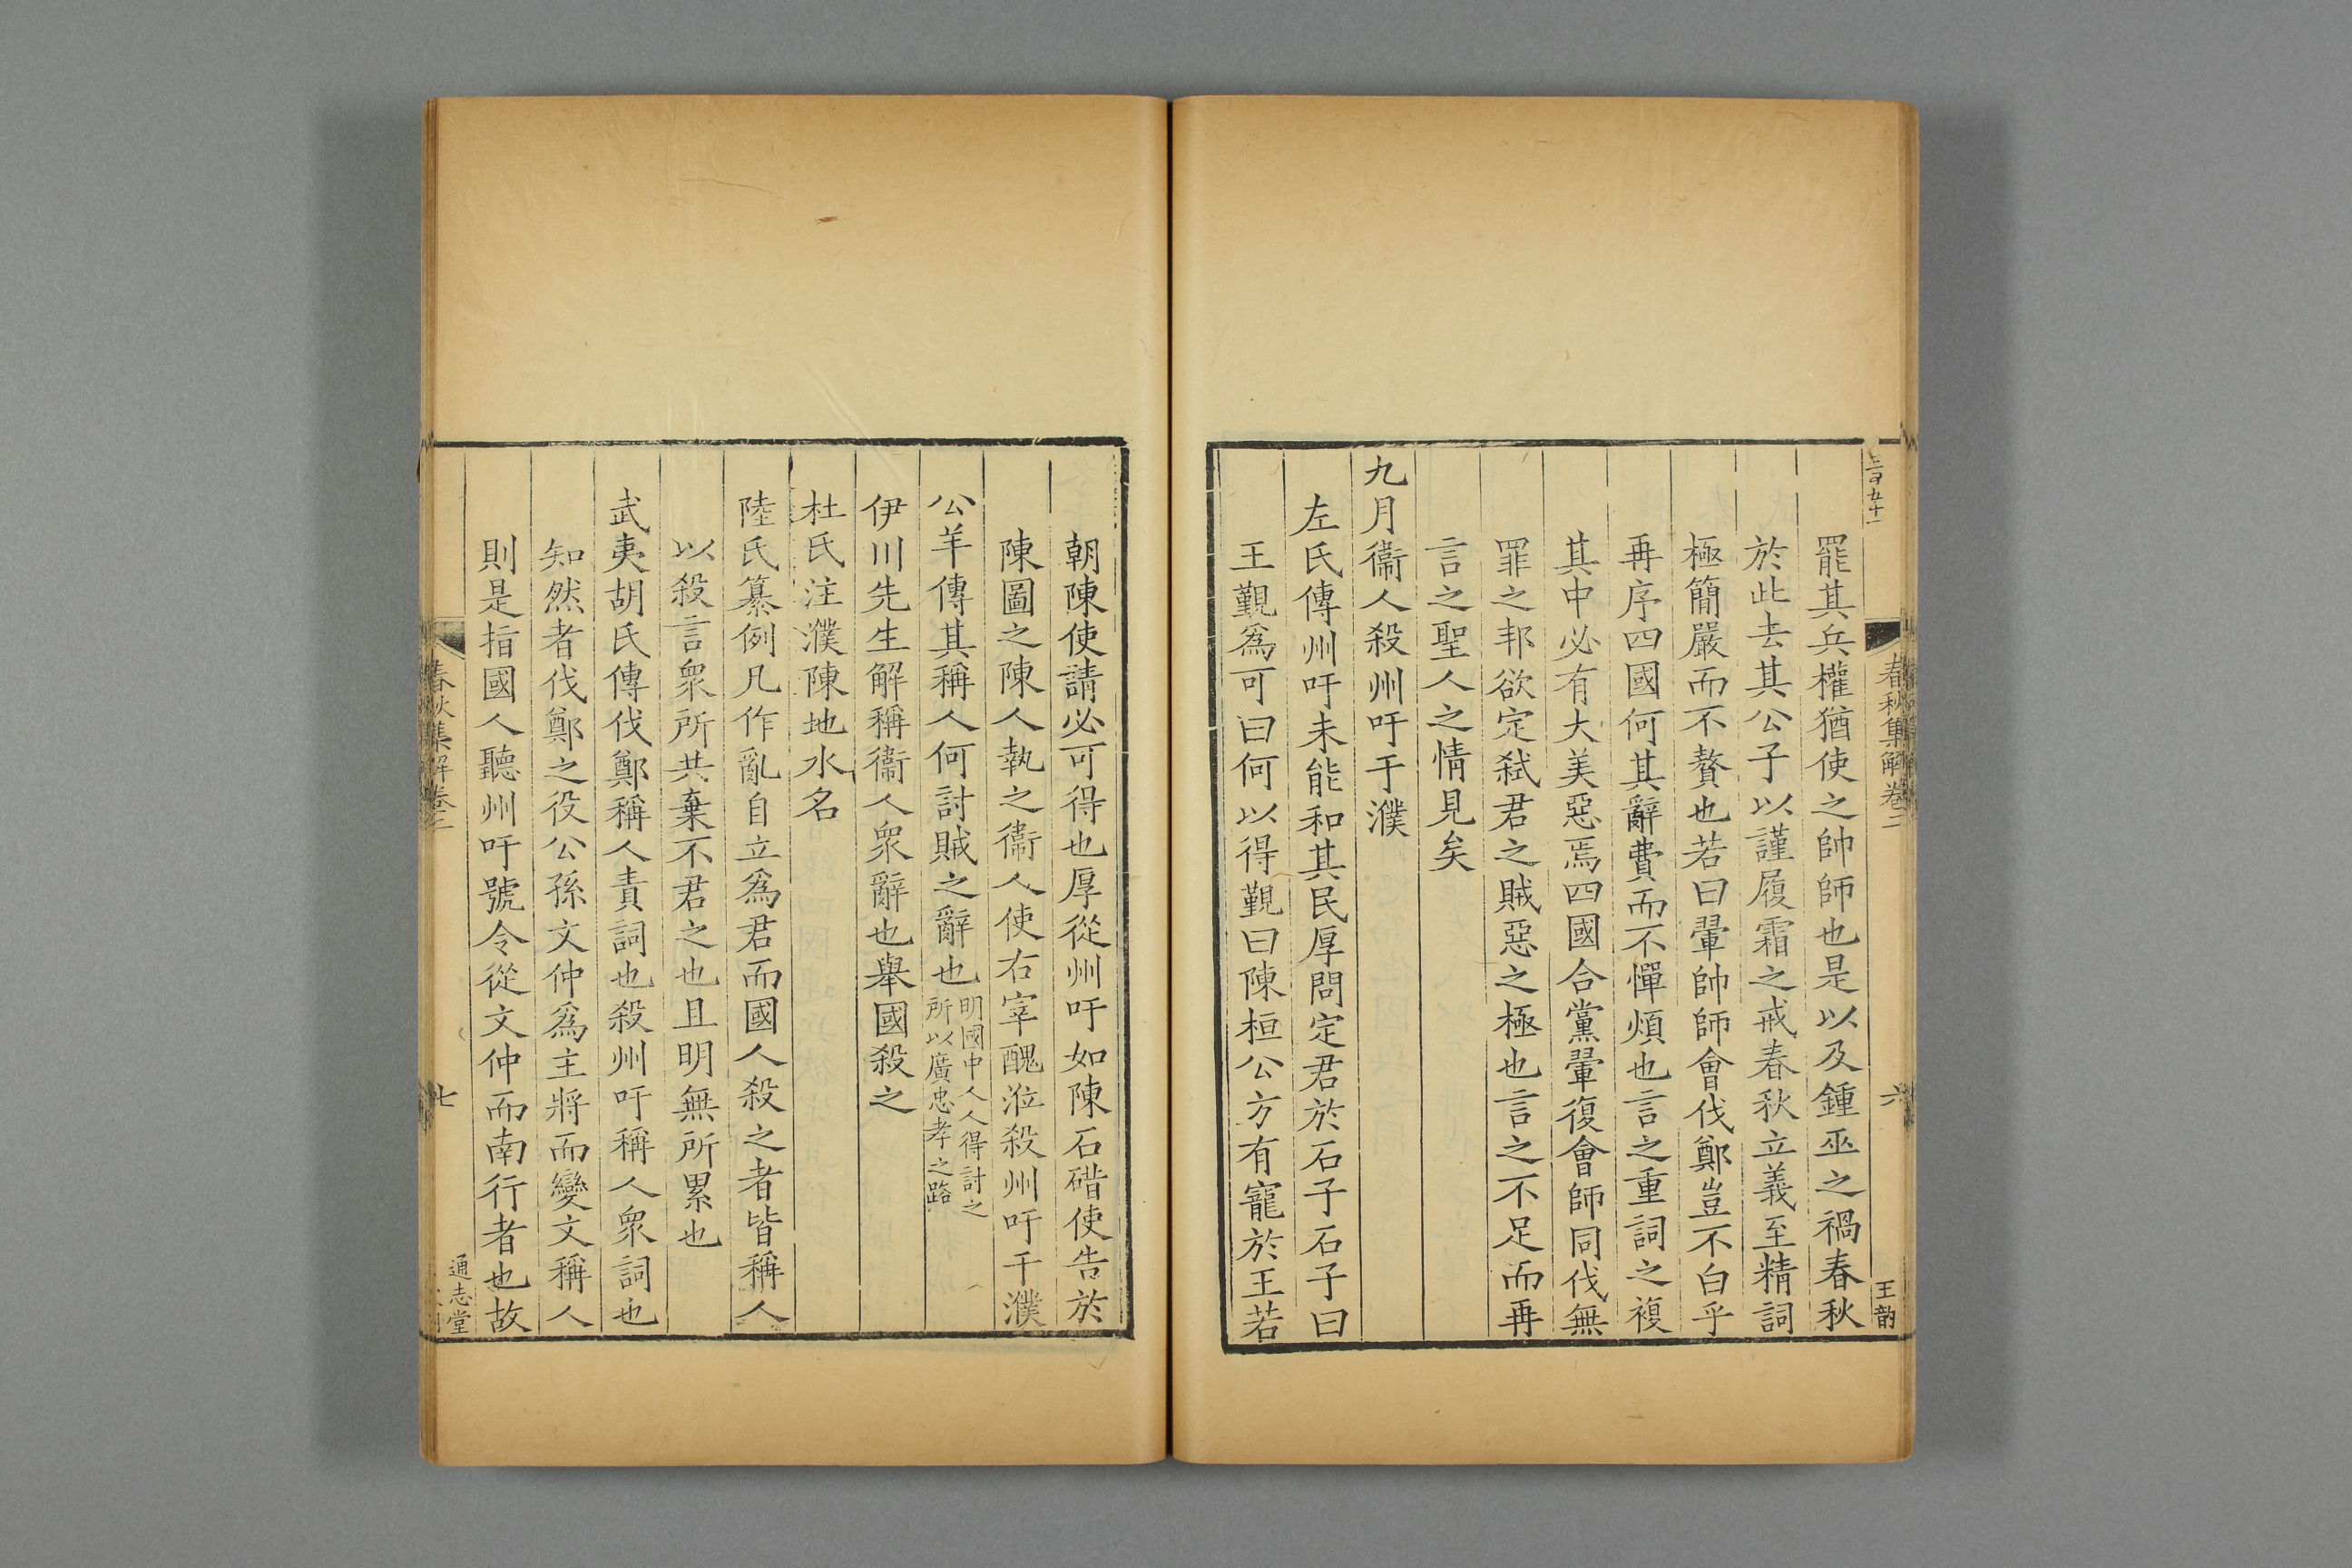 三百五十一
春秋集解卷二
六
王韵
罷其兵權猶使之帥師也是以及鍾巫之禍春秋
於此去其公子以謹履霜之戒春秋立義至精詞
極簡嚴而不贅也若曰翬帥師會伐鄭豈不白乎
再序四國何其辭費而不憚煩也言之重詞之複
其中必有大美惡焉四國合黨翬復會師同伐無
罪之邦欲定弑君之賊惡之極也言之不足而再
言之聖人之情見矣
九月衞人殺州吁于濮
左氏傳州吁未能和其民厚問定君於石子石子曰
王覲爲可曰何以得覲曰陳桓公方有寵於王若
朝陳使請必可得也厚從州吁如陳石碏使告於
陳圖之陳人執之衞人使右宰醜涖殺州吁于濮
公羊傳其稱人何討賊之辭也明國中人人得討之
所以廣忠孝之路
伊川先生解稱衞人衆辭也舉國殺之
杜氏注濮陳地水名
陸氏纂例凡作亂自立爲君而國人殺之者皆稱人
以殺言衆所共棄不君之也且明無所累也
武夷胡氏傳伐鄭稱人責詞也殺州吁稱人衆詞也
知然者伐鄭之役公孫文仲爲主將而變文稱人
則是指國人聽州吁號令從文仲而南行者也故
春秋集解卷二
七
通志堂